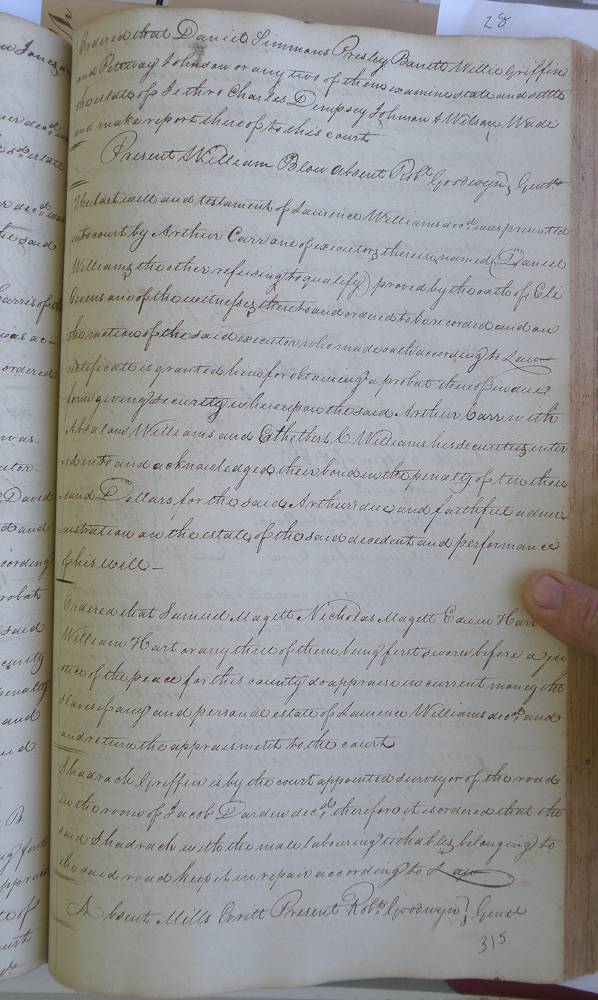 28
Ordered that Daniel Simmons Presley Barrett Willie Griffin
and Pettway Johnson or any two of them examine state and settle
the estate of Jethro Charles Dempsey Johnson & Wilson Wade
and make report thereof to this court
Present William Blow absent Robt. Goodwyn, Gent.
The last will and testament of Laurence Williams decd. was presented
into court by Arthur Carr one of executors therein named (Daniel
Williams the other refusing to qualify) proved by the oath of Eli
Owens one of the witnesses thereto and ordered to be recorded and on
the motion of the said executor who made oath according to Law
certificate is granted him for obtaining a probat thereof in due
form giving security whereupon the said Arthur Carr with
Absalom Williams and Williams his securities enter
=ed into and acknowledged their bond in the penalty of ten thou
=sand Dollars for the said Arthur's due and faithful admi=
=nistration on the estate of the said decedent and performance
of his will —
Ordered that Samuel Magett Nicholas Magett Edwin Hart
William Hart or any three of them being first sworn before a ju
=stice of the peace for this county do appraise in current money the
slaves if any and personal estate of Laurence Williams decd. and
and return the appraisment to the court
Shadrach Griffin is by the court appointed surveyor of the road
in the room of Jacob Darden decd. therefore it is ordered that the
said Shadrach with the male labouring tithables belonging to
the said road keep it in repair according to Law
Absent Mills Present Robt. Goodwyn, Gent
315